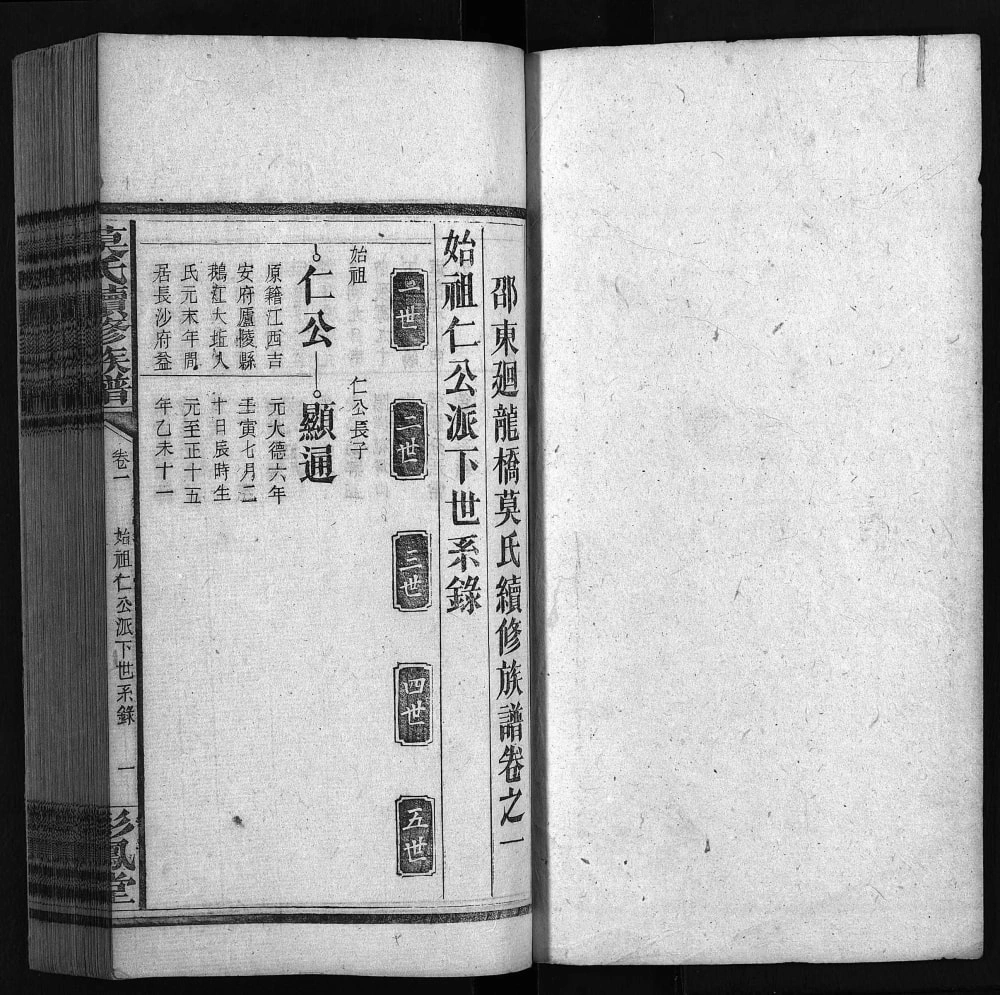 邵東廻龍橋莫氏續修族譜卷之一
始祖仁公派下世系錄
一世
二世
三世
四世
五世
始祖
仁公
原籍江西吉
安府廬陵縣
鵝江大坵人
氏元末年間
居長沙府益
仁公長子
顯通
元大德六年
壬寅七月二
十日辰時生
元至正十五
年乙未十一
莫氏續修族譜
卷一
始祖仁公派下世系錄
一
彩鳳堂